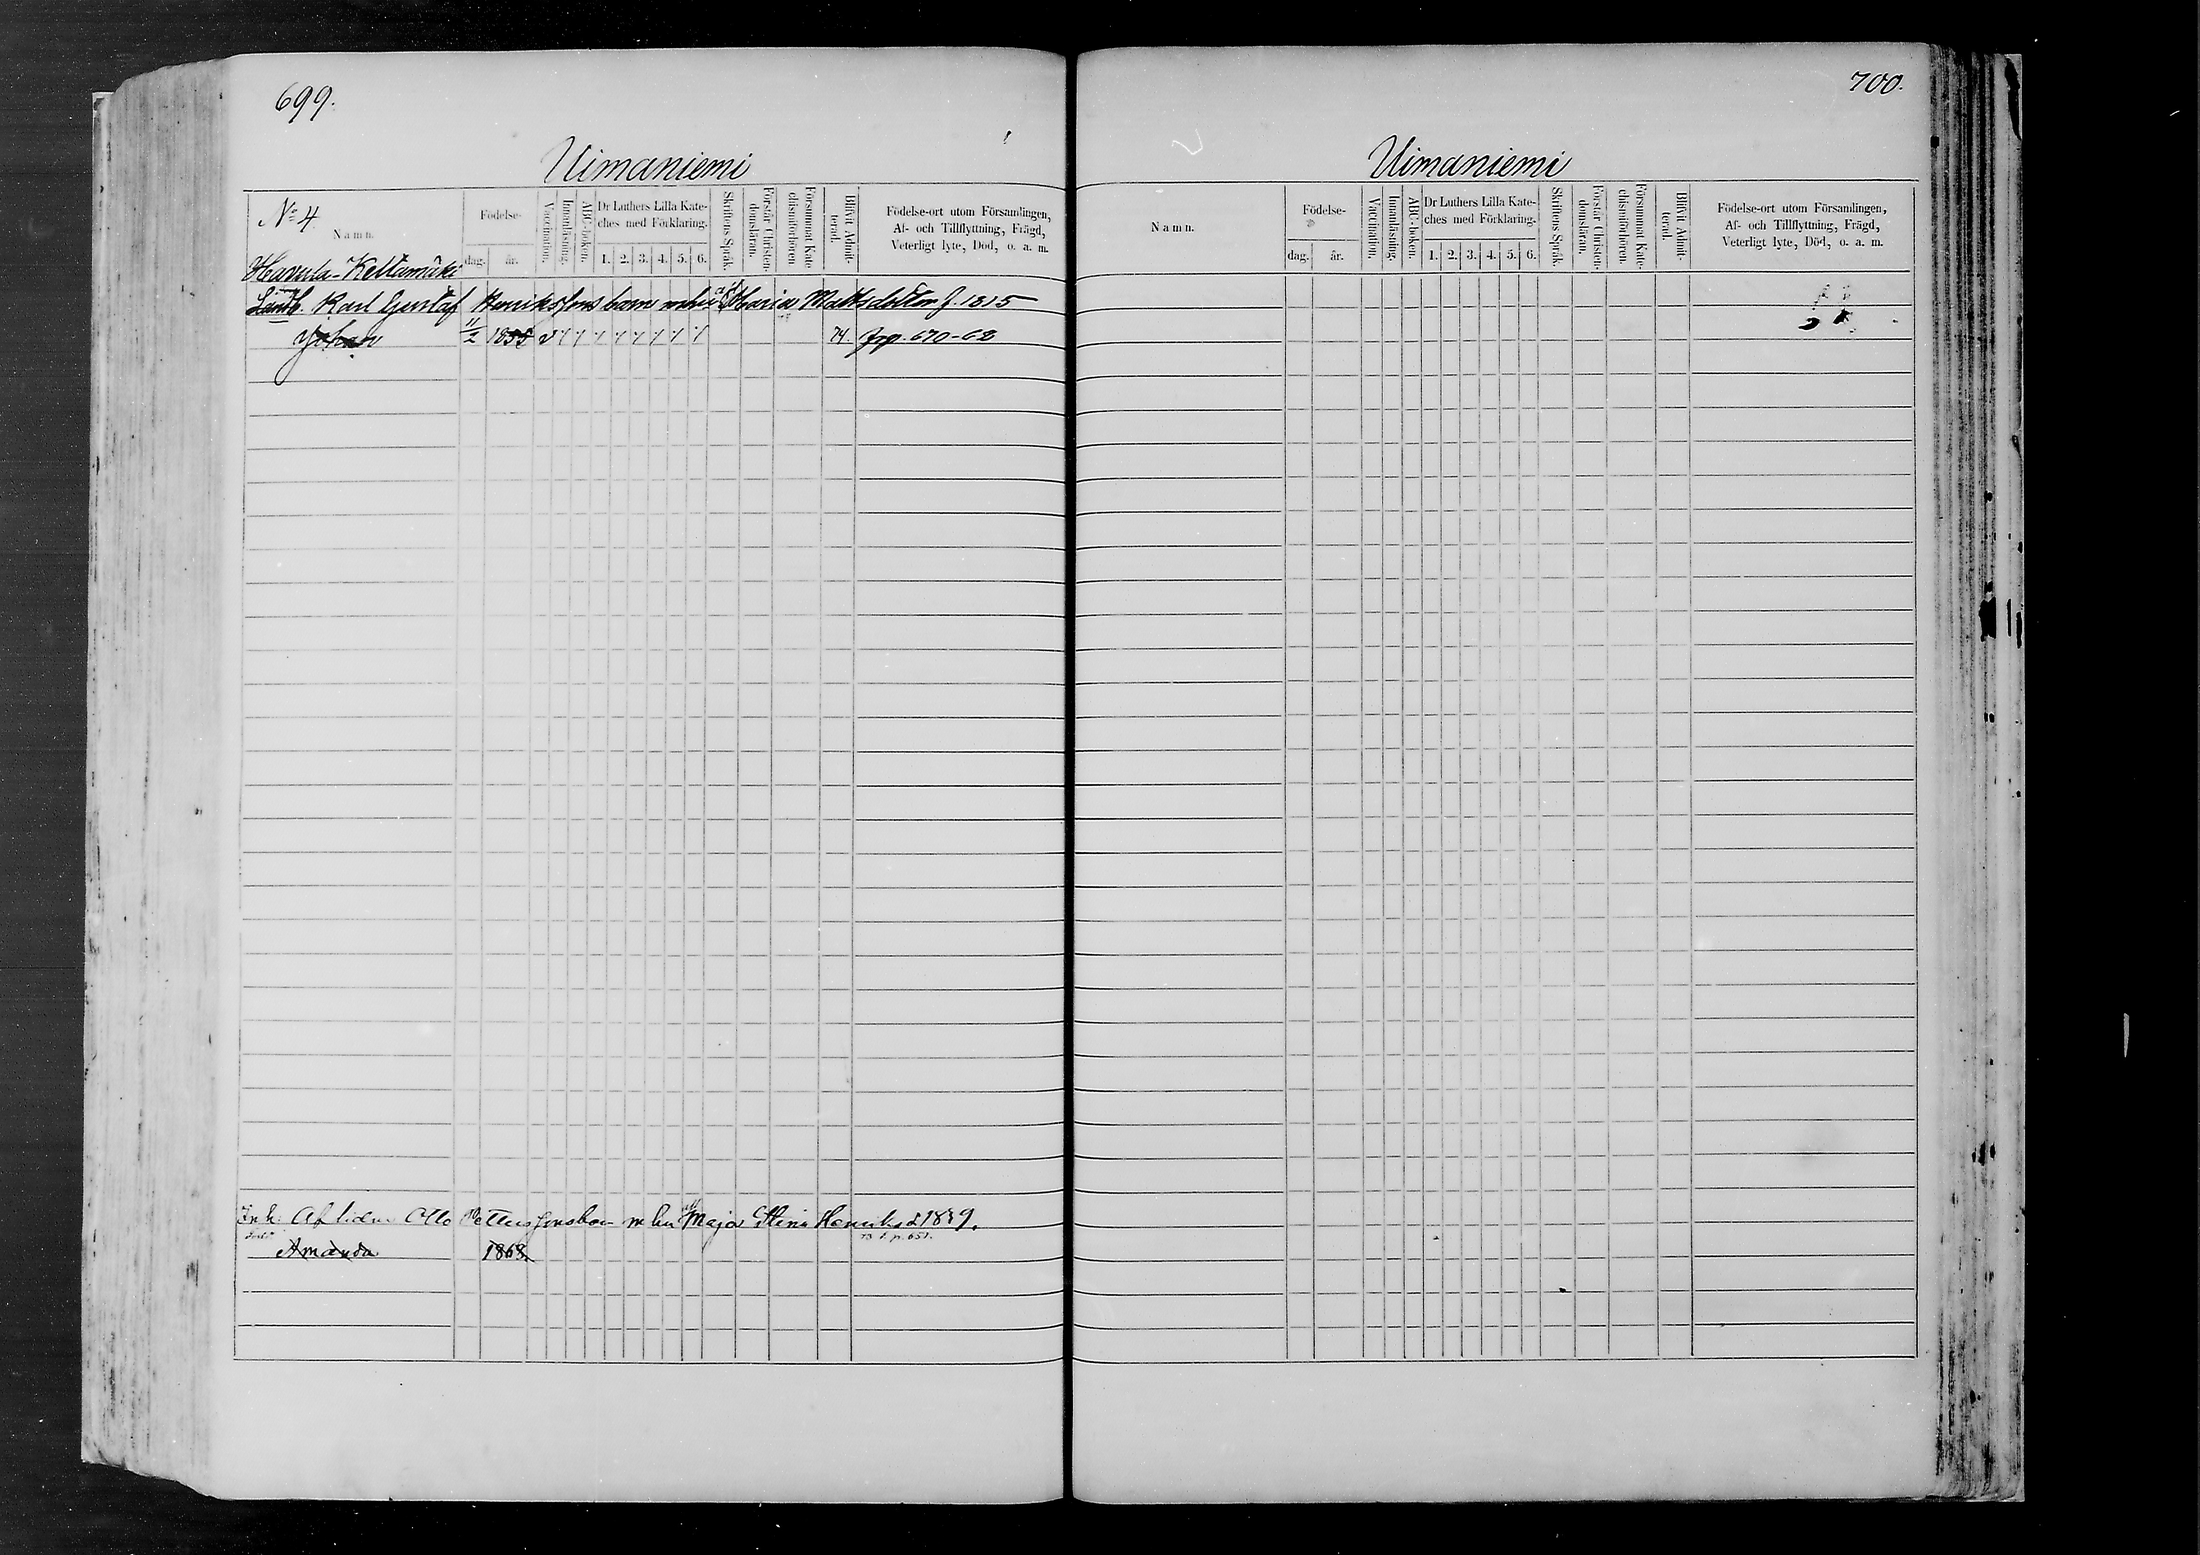 699.
Uimaniemi
No 4
Namn.
Födelse-
dag.
år.
Vaccination.
Innanläsning.
ABC-boken.
Dr Luthers Lilla Kate-
ches med Förklaring.
1. 2. 3. 4. 5. 6.
Skriftens Språk.
Förstår Christen-
domsläran.
Försummat Kate
chismiförhören
Blifvit Admit-
terad.
Födelse-ort utom Församlingen,
Af- och Tillflyttning, Frägd,
Veterligt lyte, Död, o. a. m.
Havula-Keltamäki
Karl Gustaf Henrikssons barn Maria Mattsdotter f. 1815
Johan 11/2 1855 v 74. 670-62
Inh. Aflidn Otto Petterssons m hu Maja Stina Henriksd 1839.
p. 651.
Amanda 1868.
700.
Uimaniemi
Namn.
Födelse-
dag.
år.
Vaccination.
Innanläsning.
ABC-boken.
Dr Luthers Lilla Kate-
ches med Förklaring.
1. 2. 3. 4. 5. 6.
Skriftens Språk.
Förstår Christen-
domsläran.
Försummat Kate-
chismiförhören.
Blifvit Admit-
terad.
Födelse-ort utom Församlingen,
Af- och Tillflyttning, Frägd,
Veterligt lyte, Död, o. a. m.